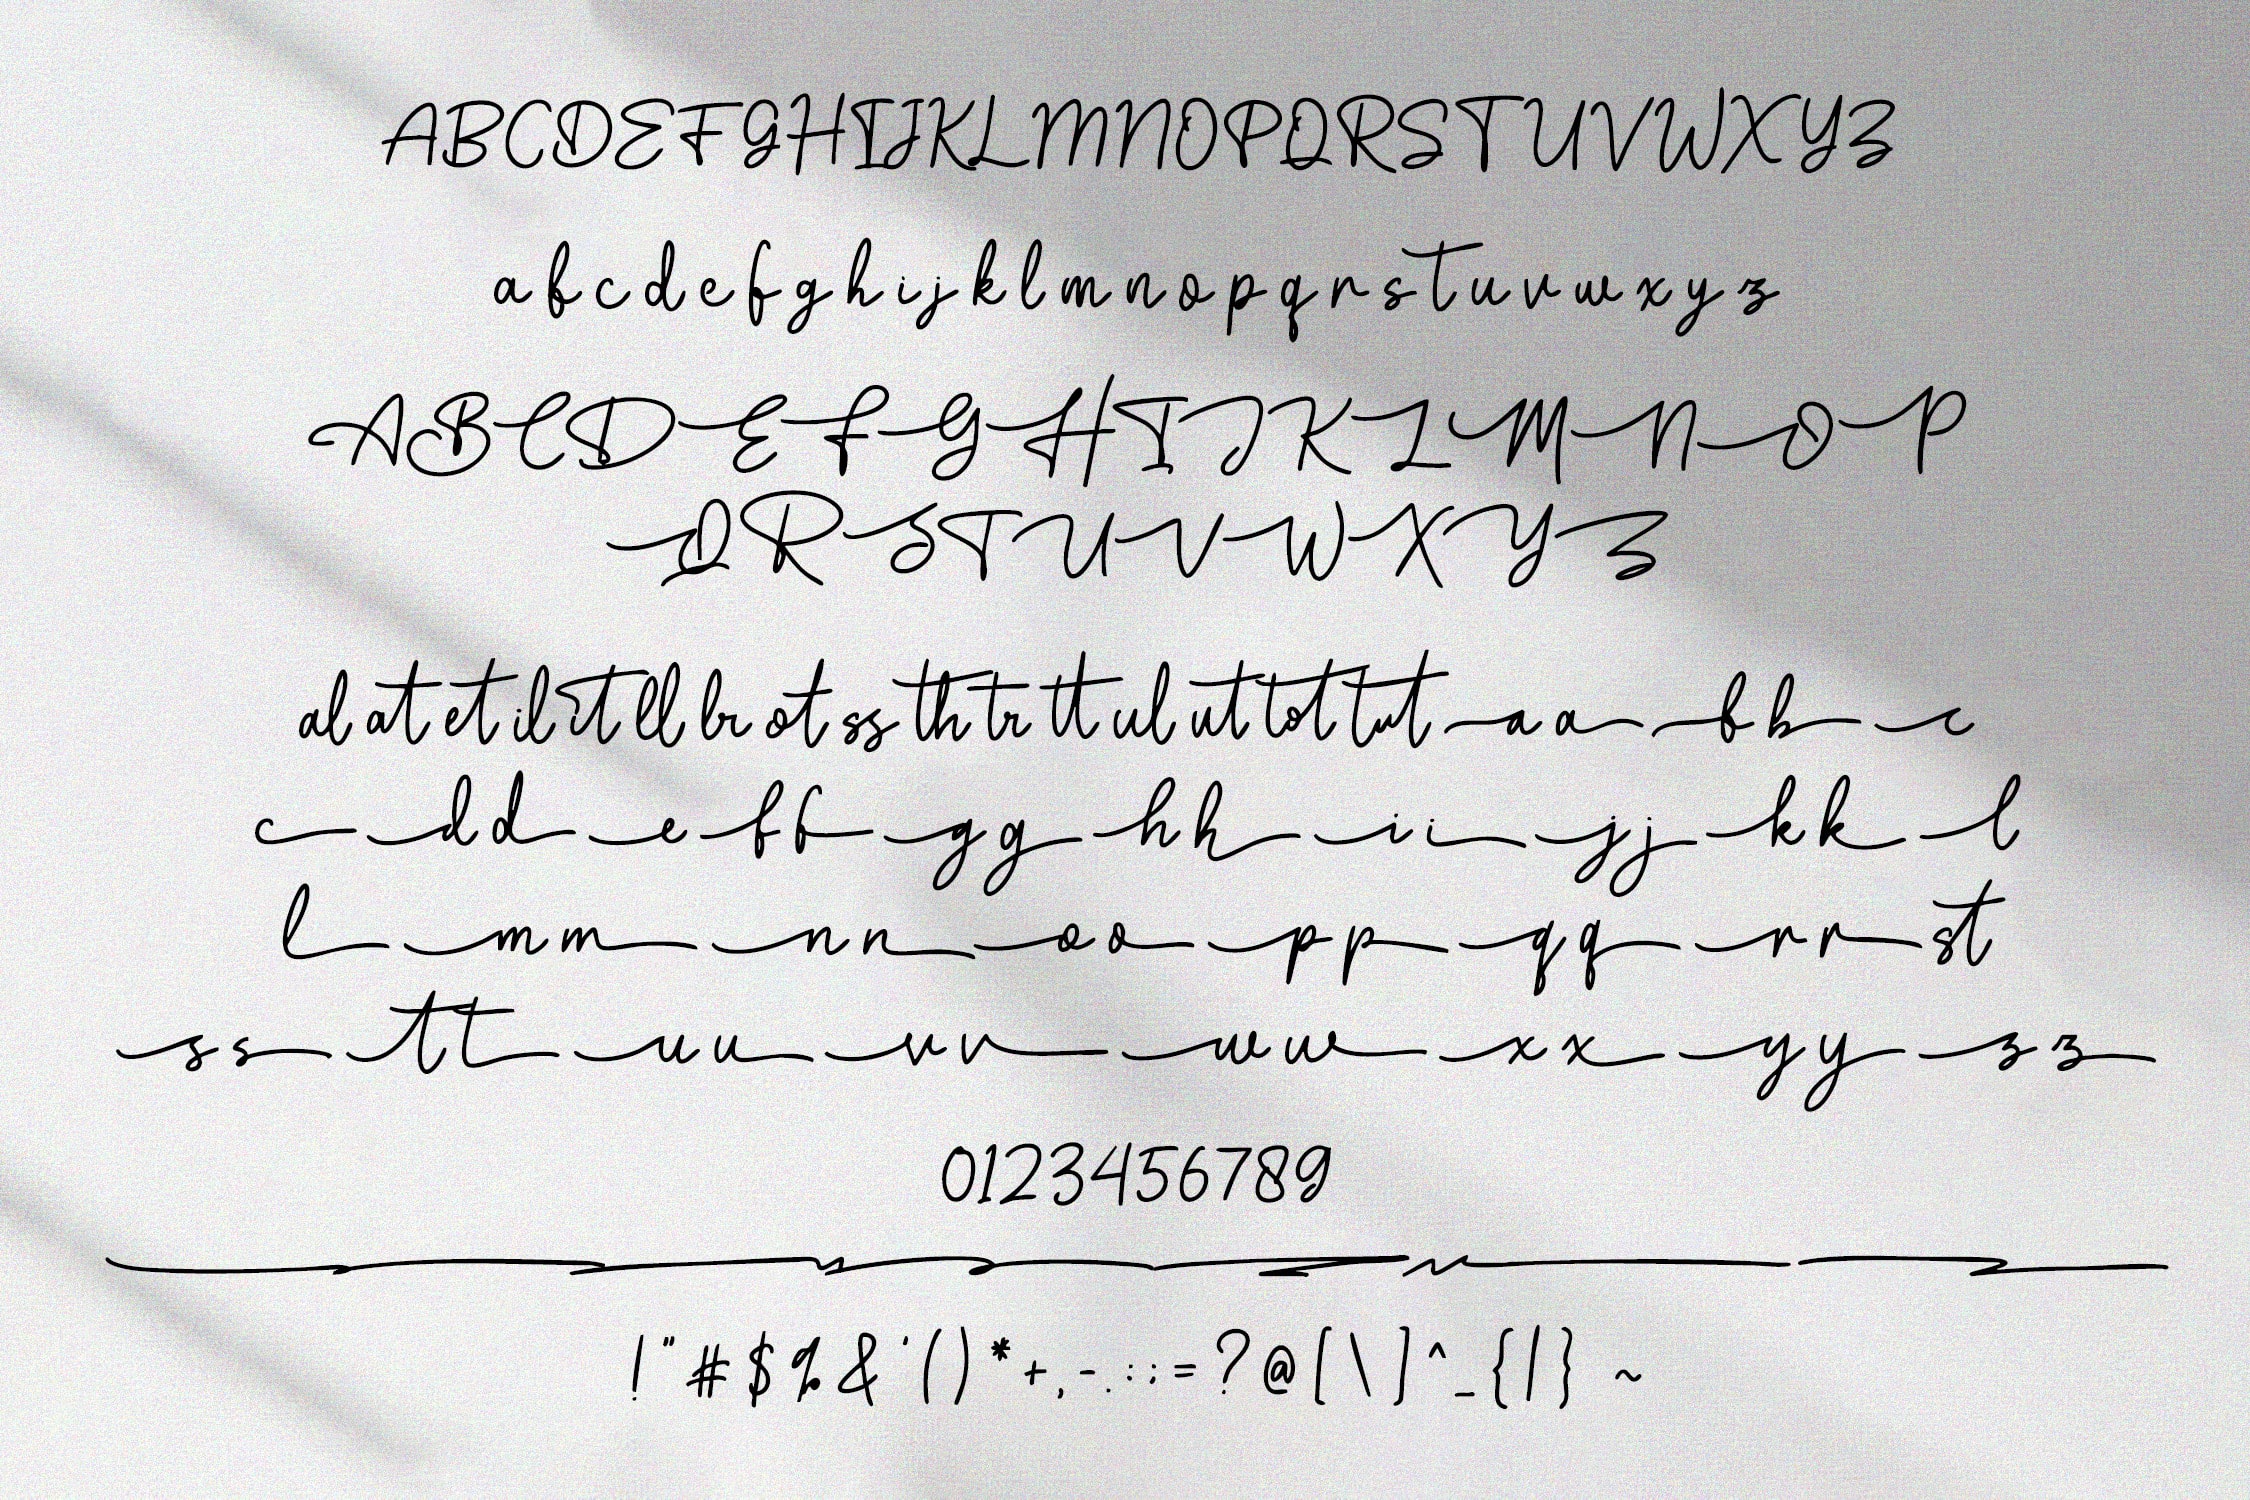 ABCDEFGHIJKLMNOPQRSTUVWXYZ
abcdefghijklmnopqrstuvwxyz
ABCDEFGHIJKLMNOP
QRSTUVWXYZ
al at et il it ll br ot ss th tr tt ul ut tot tut a a b b c
c d d e f f g g h h i i j j k k l
l m m n n o o p p q q r r st
s s t t u u v v w w x x y y z z
0123456789
! " # $ % & ' ( ) * + , - . : ; = ? @ [ \ ] ^ _ { | } ~